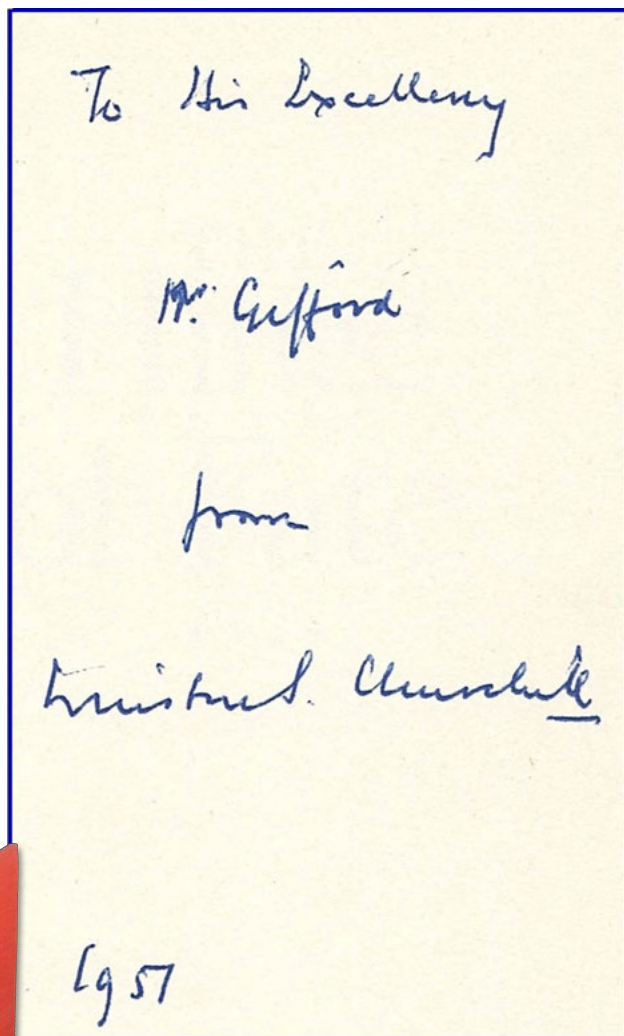 To His Excellency
Mr. Gifford
from
Winston S. Churchill
1951